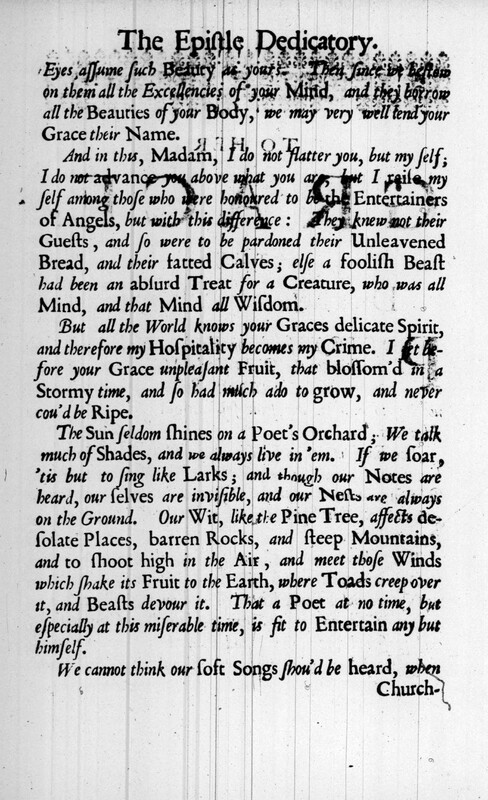 The Epiſtle Dedicatory.
Eyes aſſume ſuch Beauty as yours. Then ſince we beſtow
on them all the Excellencies of your Mind, and they borrow
all the Beauties of your Body, we may very well lend your
Grace their Name.
And in this, Madam, I do not flatter you, but my ſelf;
I do not advance you above what you are, but I raiſe my
ſelf among thoſe who were honoured to be the Entertainers
of Angels, but with this difference: They knew not their
Gueſts, and ſo were to be pardoned their Unleavened
Bread, and their fatted Calves; elſe a fooliſh Beaſt
had been an abſurd Treat for a Creature, who was all
Mind, and that Mind all Wiſdom.
But all the World knows your Graces delicate Spirit,
and therefore my Hoſpitality becomes my Crime. I ſet be-
fore your Grace unpleaſant Fruit, that bloſſom'd in a
Stormy time, and ſo had much ado to grow, and never
cou'd be Ripe.
The Sun ſeldom ſhines on a Poet's Orchard; We talk
much of Shades, and we always live in 'em. If we ſoar,
'tis but to ſing like Larks; and though our Notes are
heard, our ſelves are inviſible, and our Neſts are always
on the Ground. Our Wit, like the Pine Tree, affects de-
ſolate Places, barren Rocks, and ſteep Mountains,
and to ſhoot high in the Air, and meet thoſe Winds
which ſhake its Fruit to the Earth, where Toads creep over
it, and Beaſts devour it. That a Poet at no time, but
eſpecially at this miſerable time, is fit to Entertain any but
himſelf.
We cannot think our ſoft Songs ſhou'd be heard, when
Church-